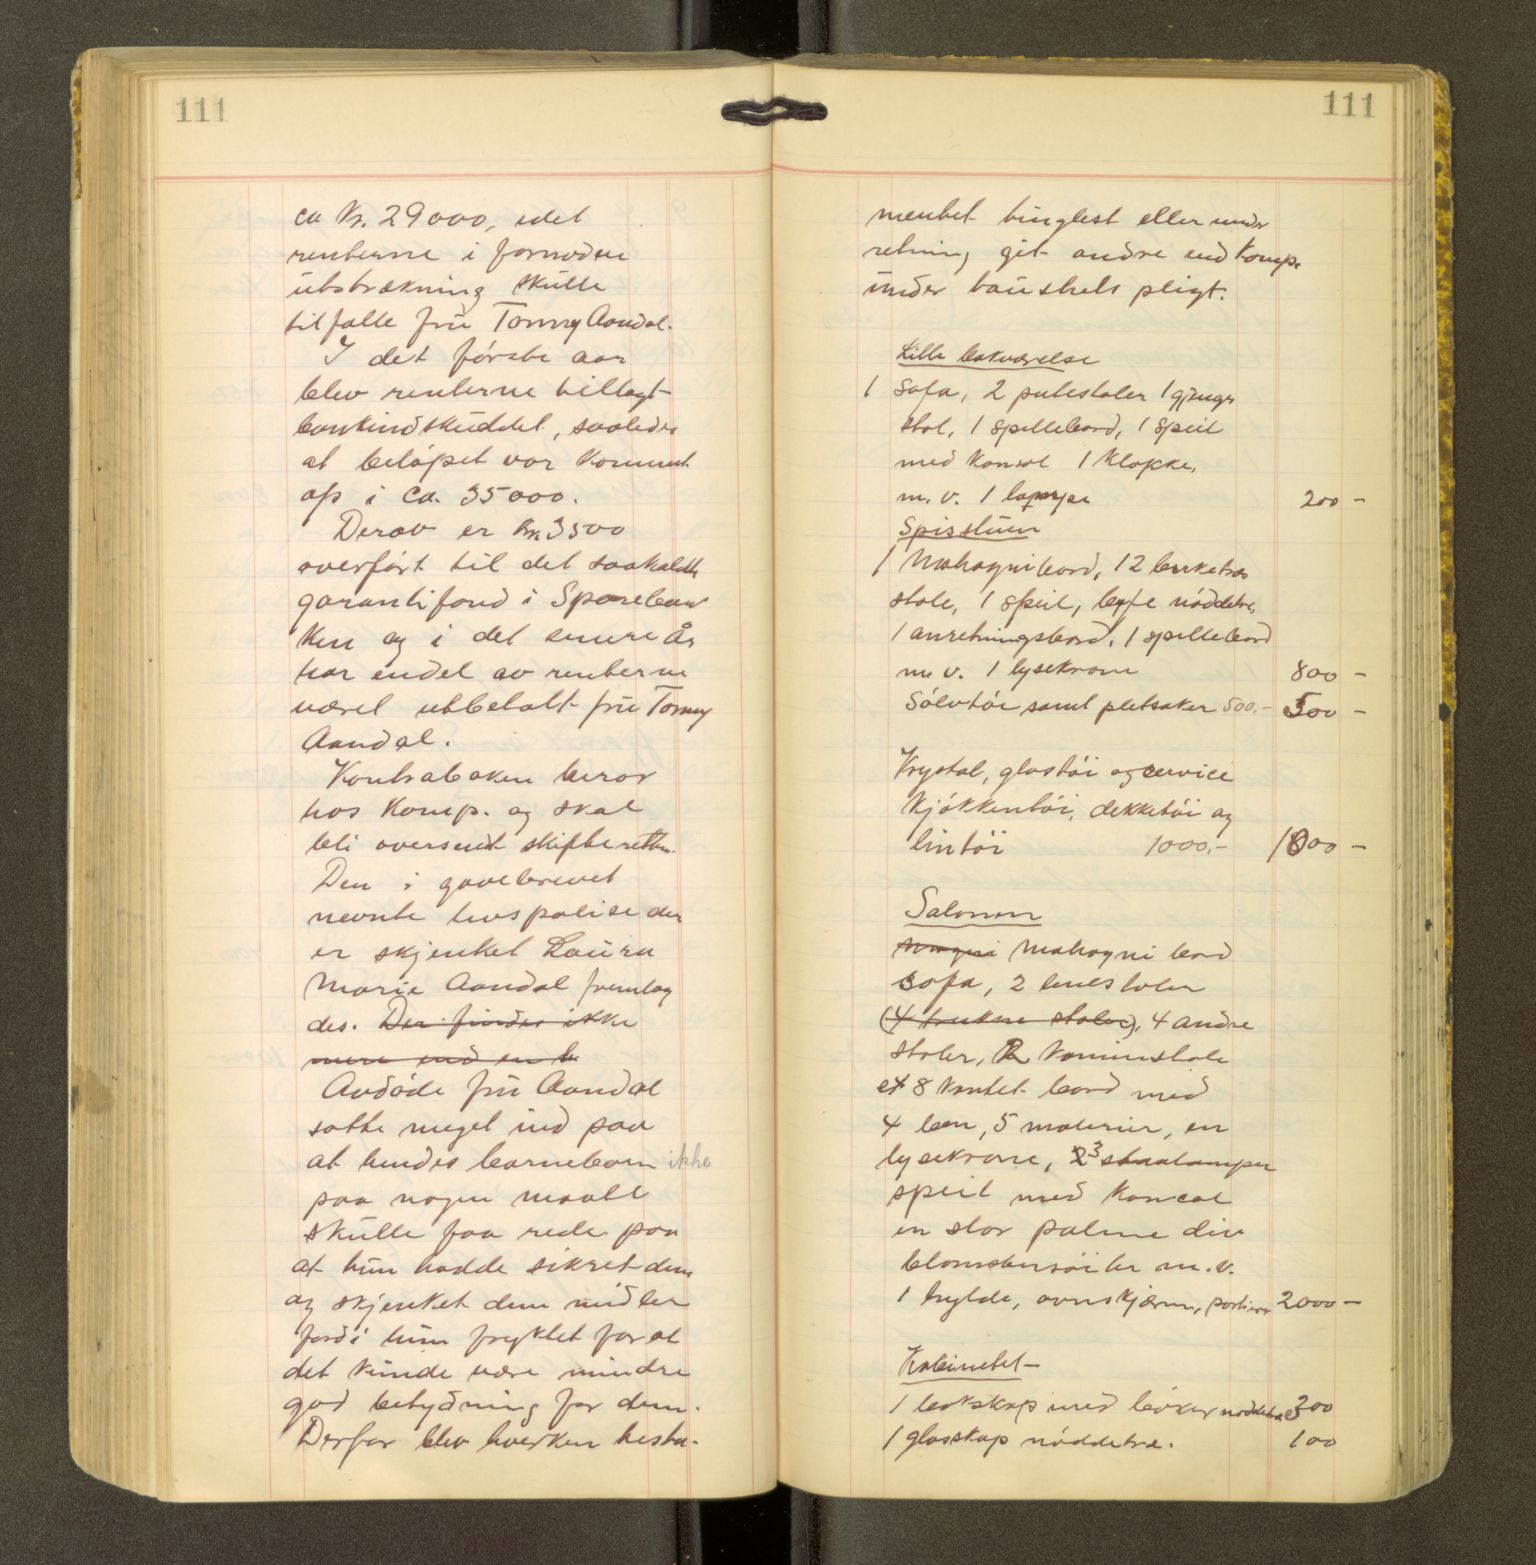 111
ca Kr. 29000, idet
renterne i fornøden
utstrækning skulle
tilfalle fru Tommy Aandal.
I det første aar
blev renterne tillagt
bankindskuddet, saaledes
at beløpet var kommet
op i ca. 35000.
Derav er kr 3500
overført til det saakaldte
garantifond i Spareban
ken og i det senere År
har endel av renterne
været utbetalt fru Tommy
Aandal.
Kontraboken beror
hos Komp. og skal
bli oversendt skifteretten.
Den i gavebrevet
nevnte livspolise der
er skjenket Laura
Marie Aandal fremlag
des. Der findes ikke
mere end en b
Avdøde fru Aandal
satte meget ind paa
at hendes barnebarn ikke
paa nogen maate
skulle faa rede paa
at hun hadde sikret dem
og skjenket dem midler
fordi hun fryktet for at
det kunde være mindre
god betydning for dem.
Derfor blev hverken testa-
111
mentet tinglest eller under
retning git andre end Komp.
under taushets pligt.
Lille bakværelse
1 Sofa, 2 putestoler 1 gjenge
stol, 1 spillebord, 1 speil
med konsol 1 klokke,
m. v. 200 –
Spisstuen
1 Mahognibord, 12 birketræs
stole, 1 speil, nøddetre,
1 anretningsbord, 1 spillebord
m. v. 1 lysekrone 800 –
Sølvtøi samt pletsaker 500.– 500 –
Krystal, glastøi og service
Kjøkkentøi, dekketøi og
lintøi 1000.– 1000 –
Salonen
Mahogni bord
sofa, 2 lenestoler
(4 trukne stoler), 4 andre
stoler, 2 kaminstole
et 8 kantet bord med
4 ben, 5 malerier, en
lysekrone, 3 staalamper
speil med konsol
en stor palme div
blomstersøiler m. v.
1 hylde, ovnskjærm, portierer 2000 –
Kabinettet
1 bokskap med bøker nøddetræ 300
1 glasskap nøddetre. 100